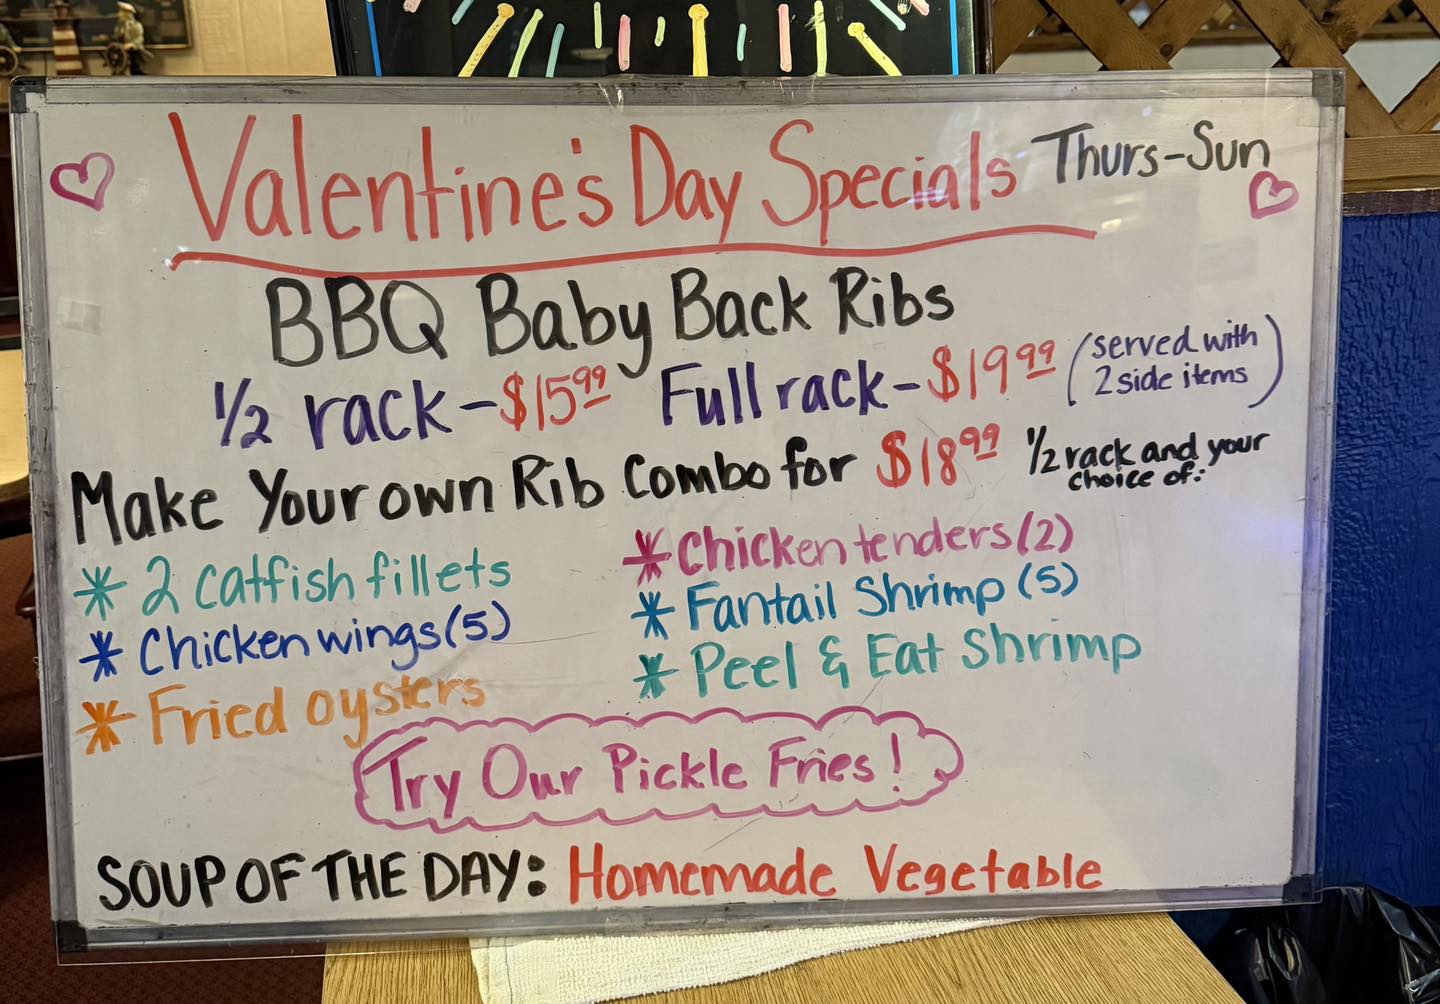 Valentine's Day Specials Thurs-Sun
BBQ Baby Back Ribs
1/2 rack - $15.99 Full rack - $19.99 (served with 2 side items)
Make Your own Rib Combo for $18.99 1/2 rack and your choice of:
* 2 catfish fillets
* Chicken wings (5)
* Fried oysters
* Chicken tenders (2)
* Fantail Shrimp (5)
* Peel & Eat Shrimp
Try Our Pickle Fries!
SOUP OF THE DAY: Homemade Vegetable